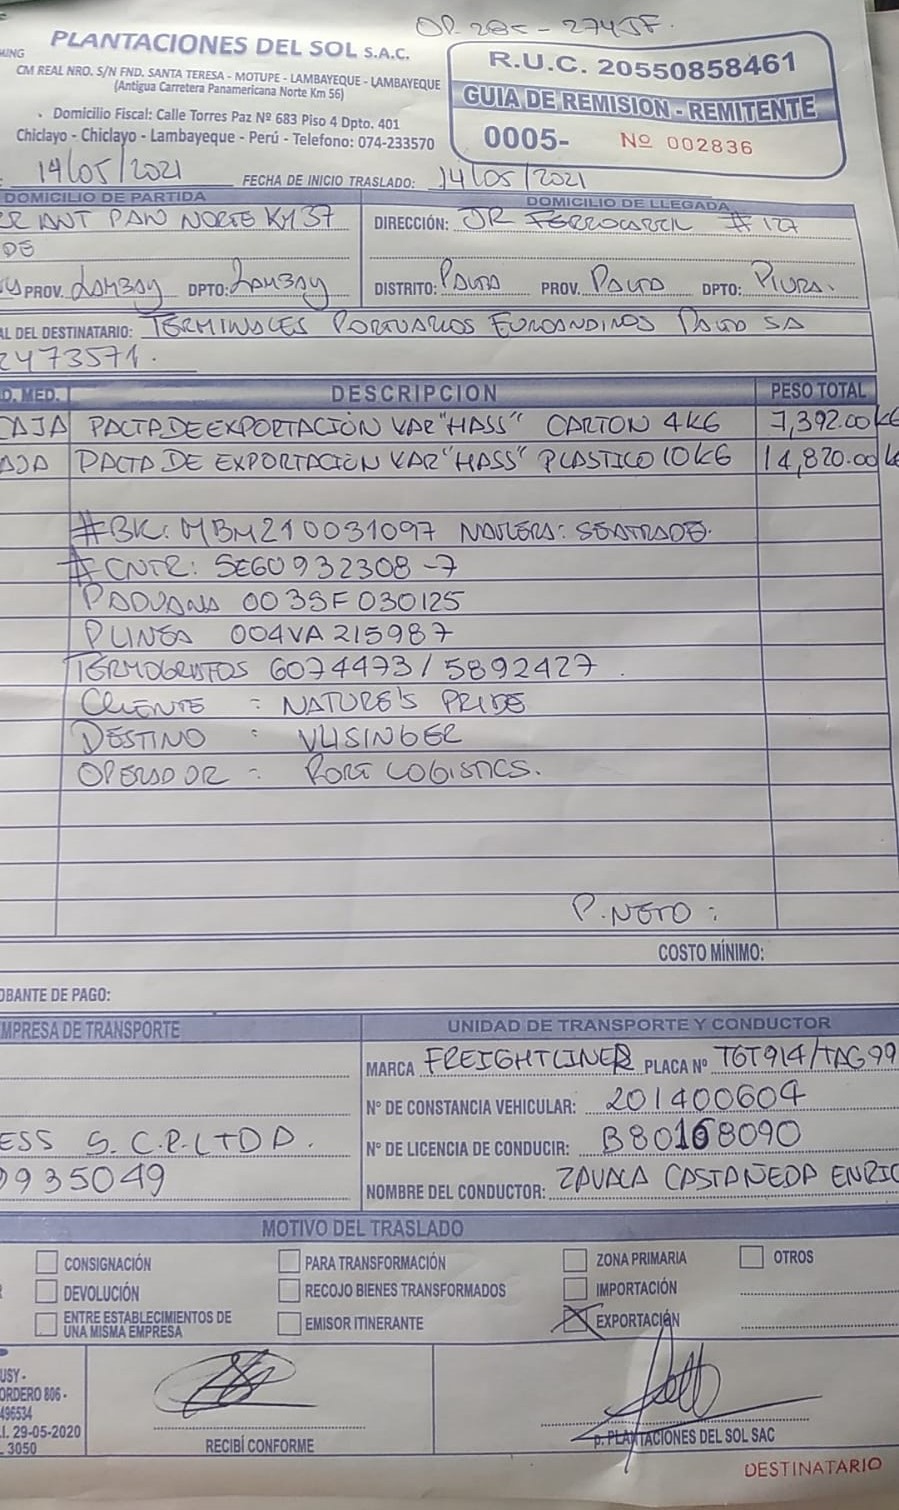 OP. 285 - 274JF.
MING
PLANTACIONES DEL SOL S.A.C.
CM REAL NRO. S/N FND. SANTA TERESA - MOTUPE - LAMBAYEQUE - LAMBAYEQUE
(Antigua Carretera Panamericana Norte Km 56)
Domicilio Fiscal: Calle Torres Paz Nº 683 Piso 4 Dpto. 401
Chiclayo - Chiclayo - Lambayeque - Perú - Telefono: 074-233570
R.U.C. 20550858461
GUIA DE REMISION - REMITENTE
0005- Nº 002836
14/05/2021 FECHA DE INICIO TRASLADO: 14/05/2021
DOMICILIO DE PARTIDA
ANT PAN NORTE KM 37
DE
PROV. LAMBAY DPTO: LAMBAY
DOMICILIO DE LLEGADA
DIRECCIÓN: JR FERROCARRIL # 127
DISTRITO: PAITA PROV. PAITA DPTO: PIURA.
AL DEL DESTINATARIO: TERMINALES PORTUARIOS EUROANDINOS PAITA SA
2473571.
D. MED. DESCRIPCION PESO TOTAL
CAJA PALTA DE EXPORTACIÓN VAR "HASS" CARTON 4KG 7,392.00 KG
AJA PALTA DE EXPORTACIÓN VAR "HASS" PLASTICO 10KG 14,820.00 K
#BK: MBM210031097 NAVIERA: SEATRADE.
# CNTR: SEGU 932308-7
P. ADUANA 003SF030125
P. LINEA 004VA215987
TERMOGRAFOS 6074473 / 5892427.
CLIENTE : NATURE'S PRIDE
DESTINO : VLISINGER
OPERADOR : RORT LOGISTICS.
P. NETO :
COSTO MÍNIMO:
OBANTE DE PAGO:
MPRESA DE TRANSPORTE
ESS S.C.R.LTDA.
9935049
UNIDAD DE TRANSPORTE Y CONDUCTOR
MARCA FREIGHTLINER PLACA Nº T6T914/TAG99
Nº DE CONSTANCIA VEHICULAR: 201400604
Nº DE LICENCIA DE CONDUCIR: B80168090
NOMBRE DEL CONDUCTOR: ZAVALA CASTAÑEDA ENRIC
MOTIVO DEL TRASLADO
CONSIGNACIÓN PARA TRANSFORMACIÓN ZONA PRIMARIA OTROS
DEVOLUCIÓN RECOJO BIENES TRANSFORMADOS IMPORTACIÓN
ENTRE ESTABLECIMIENTOS DE
UNA MISMA EMPRESA EMISOR ITINERANTE EXPORTACIÓN
USY -
ORDERO 806 -
496534
I. 29-05-2020
3050
RECIBÍ CONFORME
p. PLANTACIONES DEL SOL SAC
DESTINATARIO